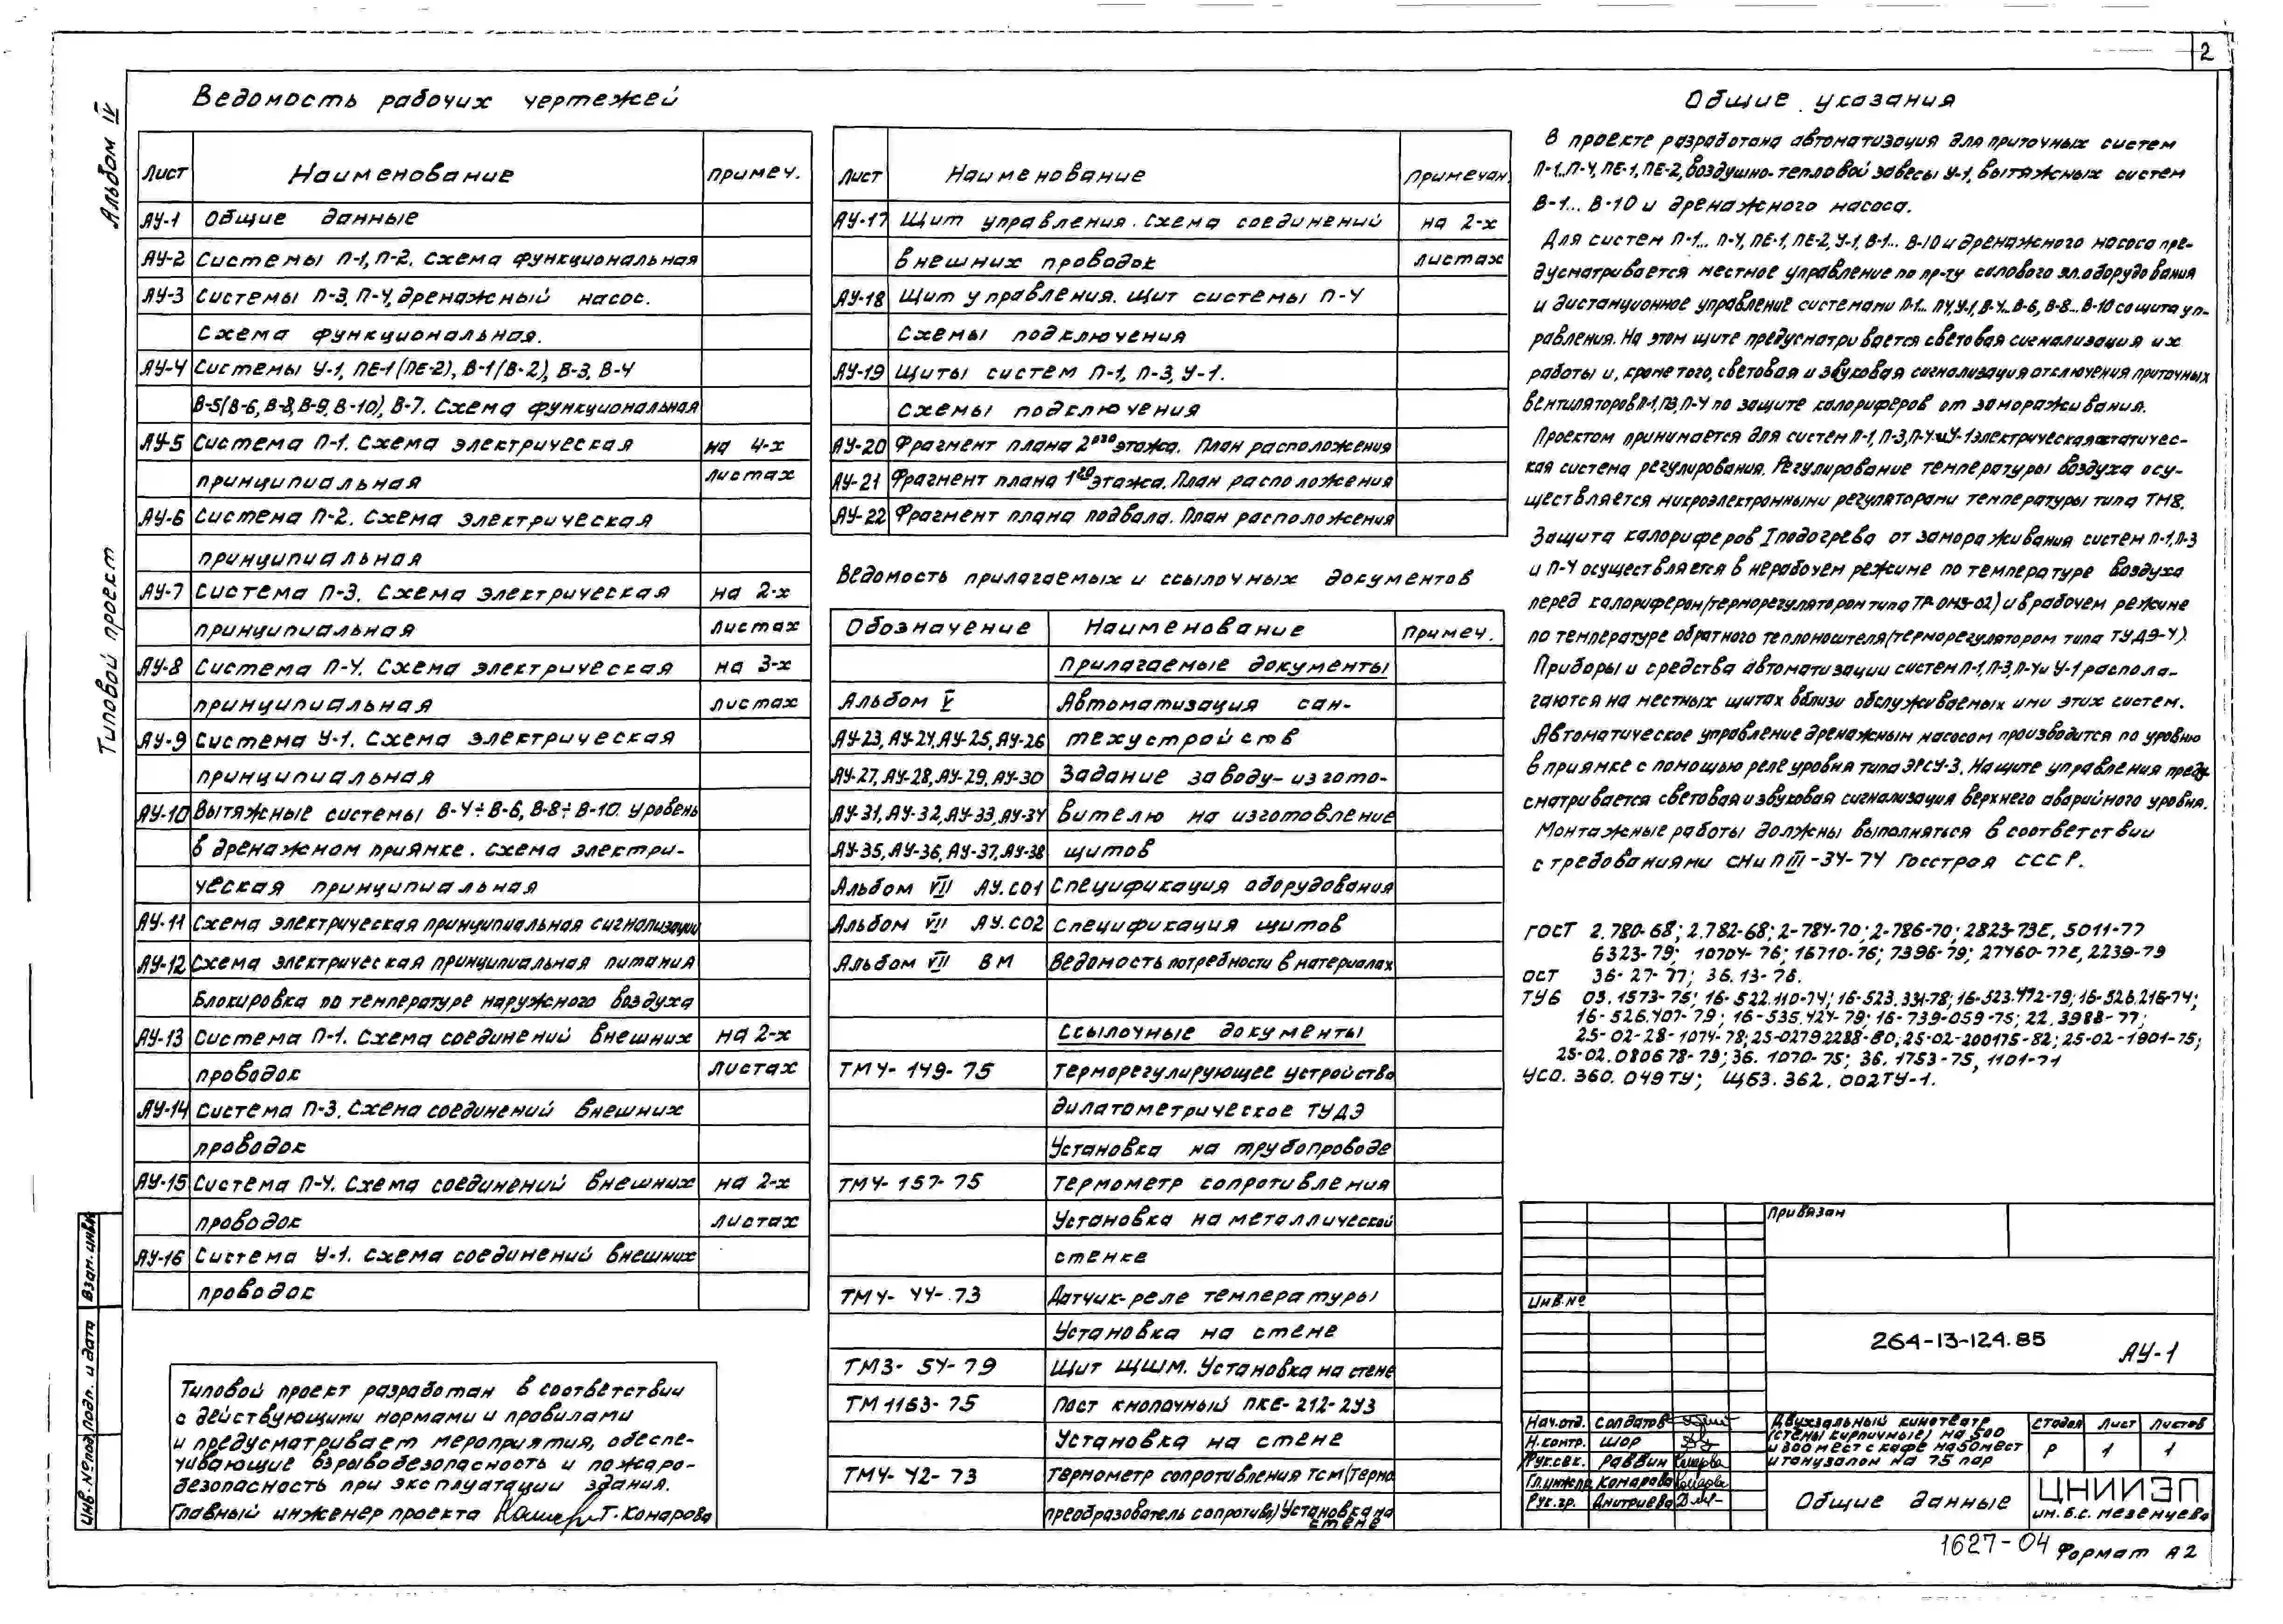 2
Альбом IV
Типовой проект
Ведомость рабочих чертежей
Лист Наименование Примеч.
АУ-1 Общие данные
АУ-2 Системы П-1, П-2. Схема функциональная
АУ-3 Системы П-3, П-4, дренажный насос.
Схема функциональная.
АУ-4 Системы У-1, ПЕ-1 (ПЕ-2), В-1 (В-2), В-3, В-4
В-5 (В-6, В-8, В-9, В-10), В-7. Схема функциональная
АУ-5 Система П-1. Схема электрическая на 4-х
принципиальная листах
АУ-6 Система П-2. Схема электрическая
принципиальная
АУ-7 Система П-3. Схема электрическая на 2-х
принципиальная листах
АУ-8 Система П-4. Схема электрическая на 3-х
принципиальная листах
АУ-9 Система У-1. Схема электрическая
принципиальная
АУ-10 Вытяжные системы В-4÷В-6, В-8÷В-10. Уровень
в дренажном приямке. Схема электри-
ческая принципиальная
АУ-11 Схема электрическая принципиальная сигнализации
АУ-12 Схема электрическая принципиальная питания
Блокировка по температуре наружного воздуха
АУ-13 Система П-1. Схема соединений внешних на 2-х
проводок листах
АУ-14 Система П-3. Схема соединений внешних
проводок
АУ-15 Система П-4. Схема соединений внешних на 2-х
проводок листах
АУ-16 Система У-1. Схема соединений внешних
проводок
Типовой проект разработан в соответствии
с действующими нормами и правилами
и предусматривает мероприятия, обеспе-
чивающие взрывобезопасность и пожаро-
безопасность при эксплуатации здания.
Главный инженер проекта Т. Комарова
Лист Наименование Примечан.
АУ-17 Щит управления. Схема соединений на 2-х
внешних проводок листах
АУ-18 Щит управления. Щит системы П-4
Схемы подключения
АУ-19 Щиты систем П-1, П-3, У-1.
Схемы подключения
АУ-20 Фрагмент плана 2ого этажа. План расположения
АУ-21 Фрагмент плана 1го этажа. План расположения
АУ-22 Фрагмент плана подвала. План расположения
Ведомость прилагаемых и ссылочных документов
Обозначение Наименование Примеч.
Прилагаемые документы
Альбом V Автоматизация сан-
АУ-23, АУ-24, АУ-25, АУ-26 техустройств
АУ-27, АУ-28, АУ-29, АУ-30 Задание заводу-изгото-
АУ-31, АУ-32, АУ-33, АУ-34 вителю на изготовление
АУ-35, АУ-36, АУ-37, АУ-38 щитов
Альбом VII АУ.СО1 Спецификация оборудования
Альбом VII АУ.СО2 Спецификация щитов
Альбом VII ВМ Ведомость потребности в материалах
Ссылочные документы
ТМ4-149-75 Терморегулирующее устройство
дилатометрическое ТУДЭ
Установка на трубопроводе
ТМ4-157-75 Термометр сопротивления
Установка на металлической
стенке
ТМ4-44-73 Датчик-реле температуры
Установка на стене
ТМ3-54-79 Щит ЩШМ. Установка на стене
ТМ1163-75 Пост кнопочный ПКЕ-212-2У3
Установка на стене
ТМ4-42-73 Термометр сопротивления ТСМ (Термо
преобразователь сопротивл) Установка на
стене
Общие указания
В проекте разработана автоматизация для приточных систем
П-1...П-4, ПЕ-1, ПЕ-2, воздушно-тепловой завесы У-1, вытяжных систем
В-1... В-10 и дренажного насоса.
Для систем П-1... П-4, ПЕ-1, ПЕ-2, У-1, В-1... В-10 и дренажного насоса пре-
дусматривается местное управление по пр-ту силового эл.оборудования
и дистанционное управление системами П-1... П4, У-1, В-4...В-6, В-8...В-10 со щита уп-
равления. На этом щите предусматривается световая сигнализация их
работы и, кроме того, световая и звуковая сигнализация отключения приточных
вентиляторов П-1, П3, П-4 по защите калориферов от замораживания.
Проектом принимается для систем П-1, П-3, П-4 и У-1 электрическая статичес-
кая система регулирования. Регулирование температуры воздуха осу-
ществляется микроэлектронными регуляторами температуры типа ТМ8.
Защита калориферов I подогрева от замораживания систем П-1, П-3
и П-4 осуществляется в нерабочем режиме по температуре воздуха
перед калорифером (терморегулятором типа ТР-ОМ5-02) и в рабочем режиме
по температуре обратного теплоносителя (терморегулятором типа ТУДЭ-4).
Приборы и средства автоматизации систем П-1, П-3, П-4 и У-1 распола-
гаются на местных щитах вблизи обслуживаемых ими этих систем.
Автоматическое управление дренажным насосом производится по уровню
в приямке с помощью реле уровня типа ЭРСУ-3. На щите управления преду-
сматривается световая и звуковая сигнализация верхнего аварийного уровня.
Монтажные работы должны выполняться в соответствии
с требованиями СНиП III-34-74 Госстроя СССР.
ГОСТ 2.780-68; 2.782-68; 2-784-70; 2-786-70; 2823-73Е, 5011-77
6323-79; 10704-76; 16710-76; 7396-79; 27460-77Е, 2239-79
ОСТ 36-27-77; 36.13-76.
ТУ6 03.1573-75; 16-522.110-74; 16-523.331-78; 16-523.472-79; 16-526.216-74;
16-526.407-79; 16-535.424-79; 16-739-059-75; 22.3988-77;
25-02-28-1074-78; 25-02792288-80; 25-02-200175-82; 25-02-1901-75;
25-02.080678-79; 36. 1070-75; 36. 1753-75, 1101-71
УСО. 360. 049 ТУ; ЩБ3. 362. 002ТУ-1.
Привязан
Инв. №
264-13-124.85 АУ-1
Нач.отд. Солдатов
Н.контр. Шор
Рук.сек. Раввин
Гл.инж.пр. Комарова
Рук.гр. Дмитриева
Двухзальный кинотеатр
(стены кирпичные) на 500
и 300 мест с кафе на 50 мест
и танцзалом на 75 пар
Стадия Лист Листов
Р 1 1
Общие данные
ЦНИИЭП
им. Б.С. Мезенцева
1627-04 Формат А2
Взам. инв.№
Подп. и дата
Инв. № под.